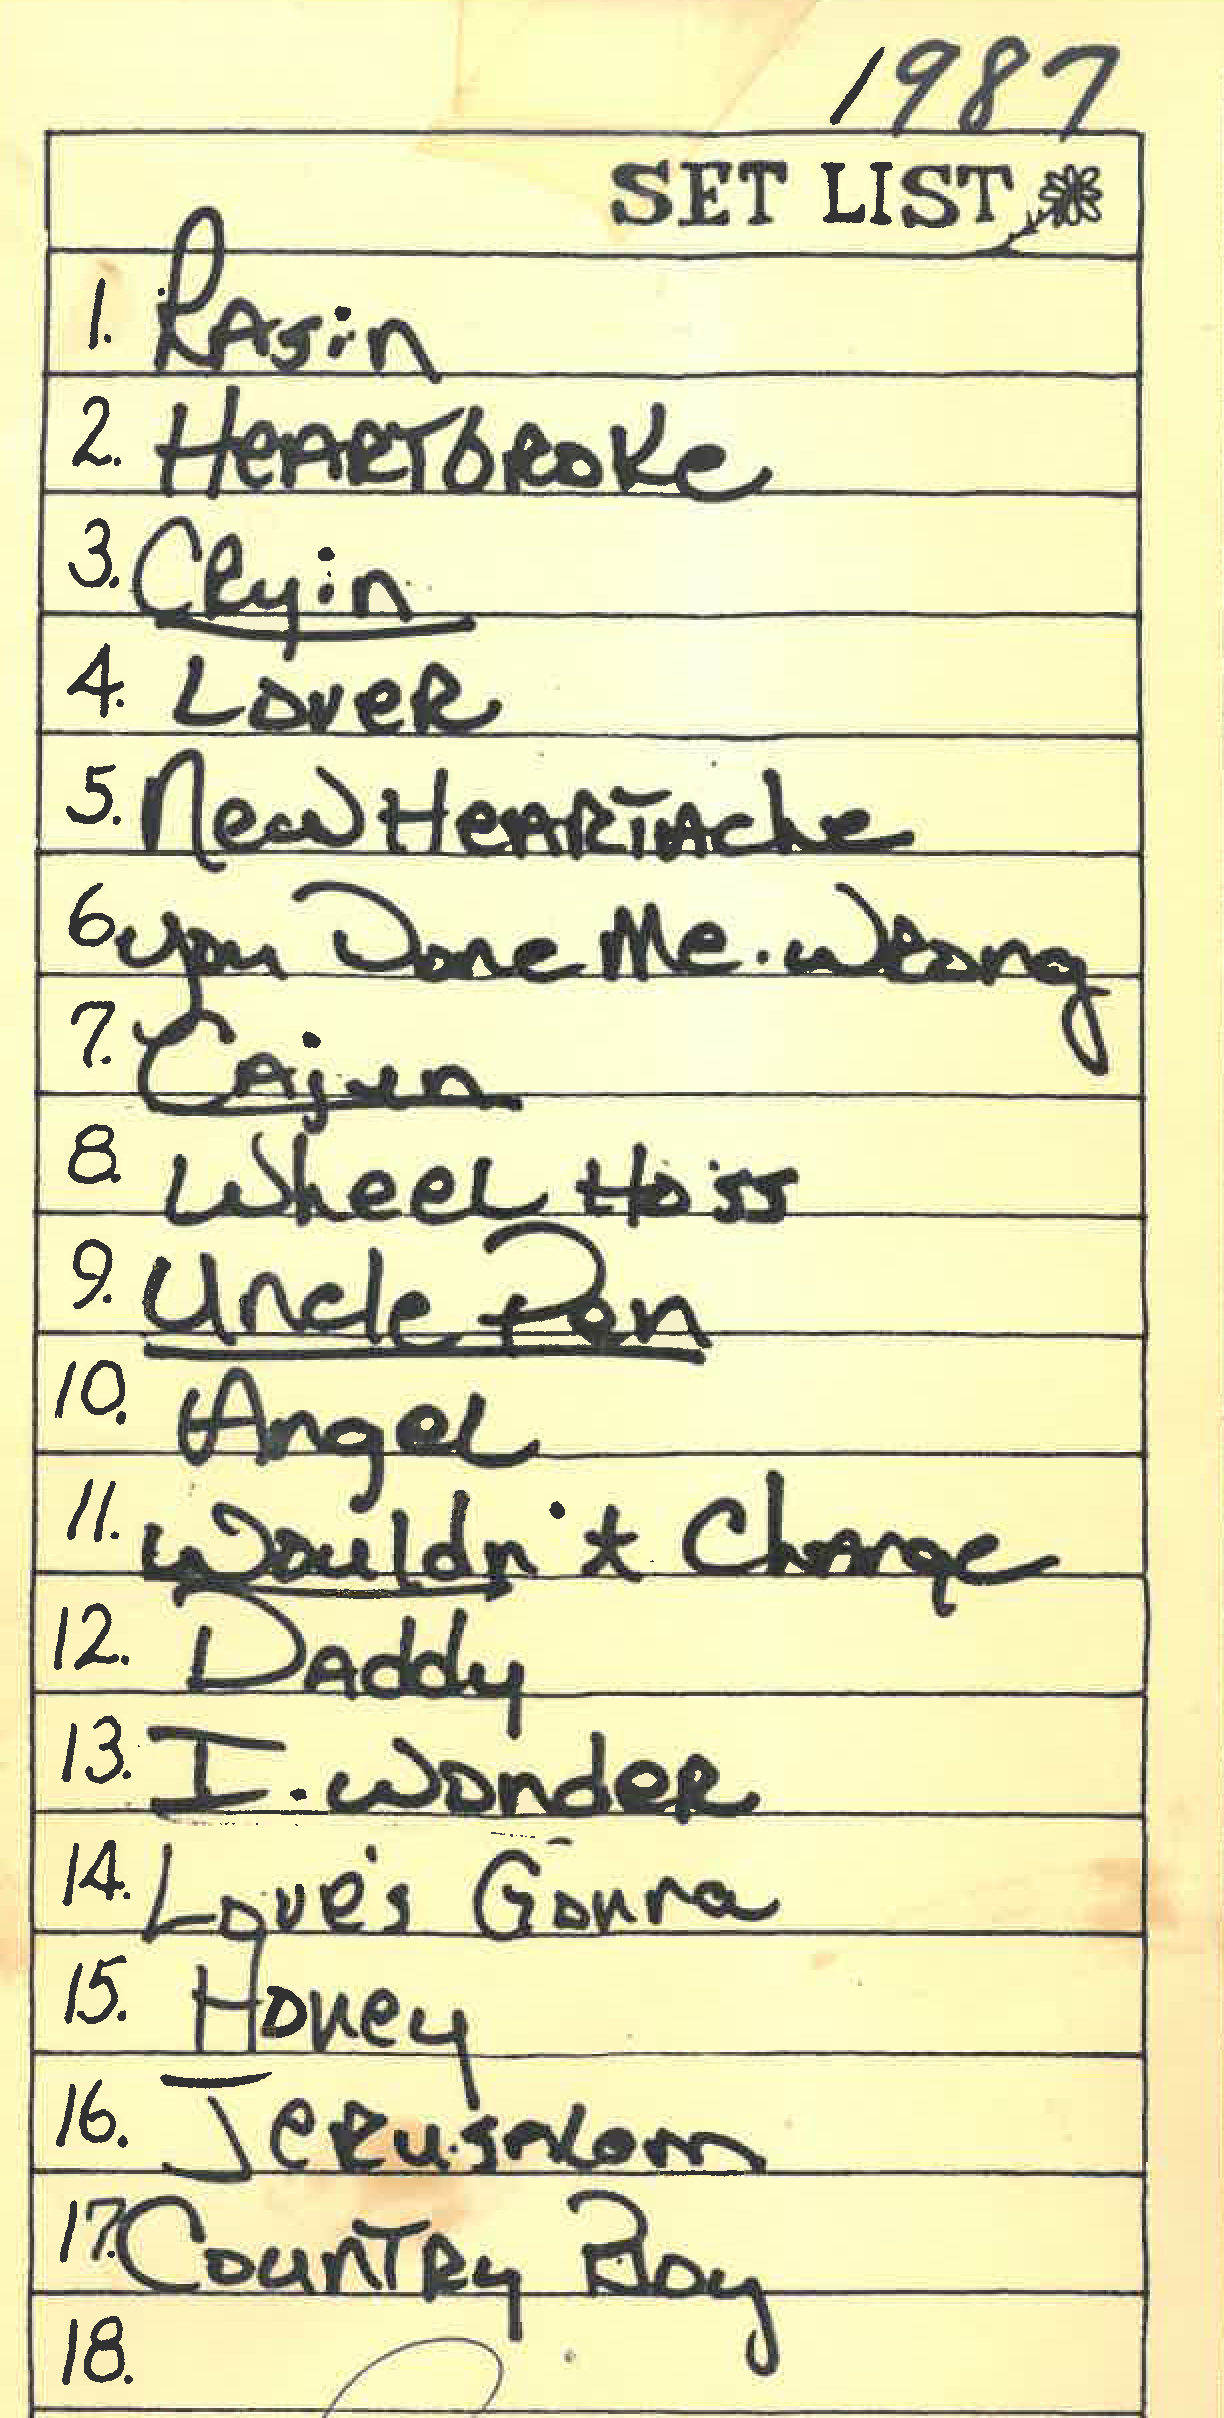 1987
SET LIST
1. RAsin
2. HeARTbROKe
3. CRyin
4. LoveR
5. New HeARTAche
6 you Done Me. WRong
7. CAjun
8. WheeL Hoss
9. Uncle Pen
10. AngeL
11. Wouldn't Change
12. DAddy
13. I. WondeR
14. Love's Gonna
15. Honey
16. JeRusAlem
17. CounTRy Boy
18.